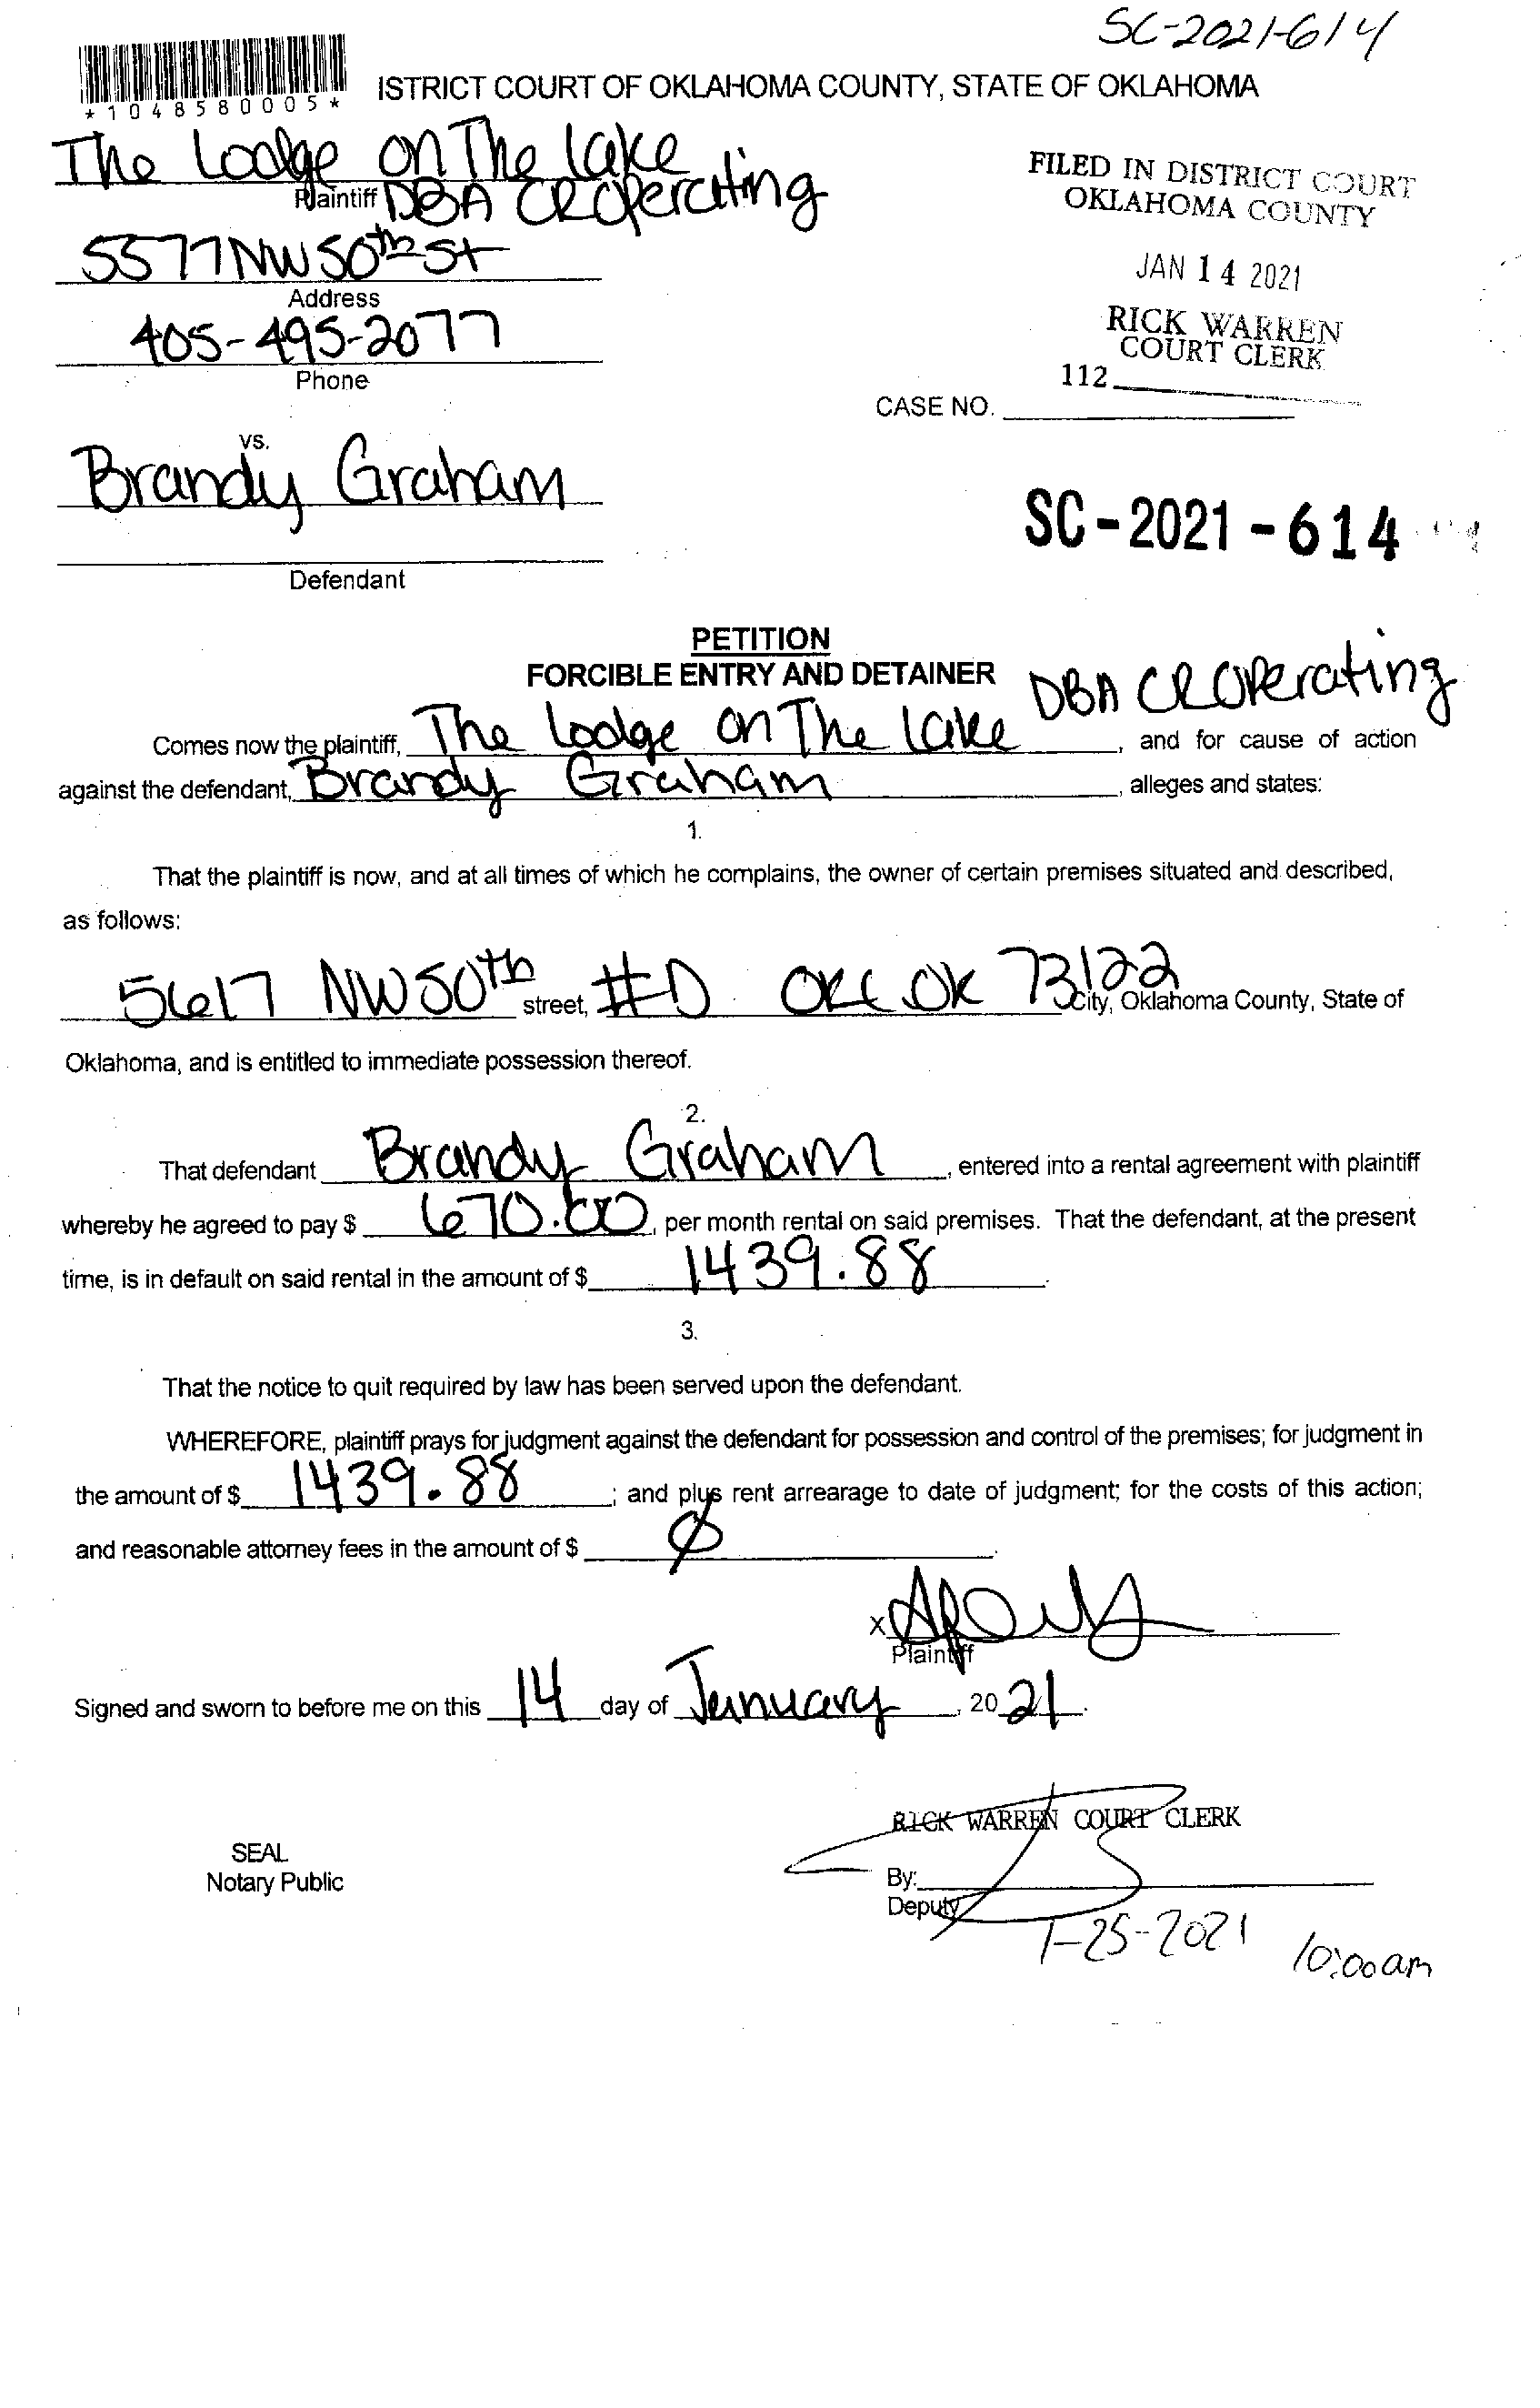 SC-2021-614
*1048580005*
ISTRICT COURT OF OKLAHOMA COUNTY, STATE OF OKLAHOMA
The Lodge on The lake
Plaintiff DBA CR Operating
FILED IN DISTRICT COURT
OKLAHOMA COUNTY
5577 NW 50th St
Address
JAN 14 2021
405-495-2077
Phone
RICK WARREN
COURT CLERK
112
CASE NO.
vs.
Brandy Graham
SC-2021-614
Defendant
PETITION
FORCIBLE ENTRY AND DETAINER
DBA CR Operating
Comes now the plaintiff, The Lodge on The lake, and for cause of action
against the defendant, Brandy Graham, alleges and states:
1.
That the plaintiff is now, and at all times of which he complains, the owner of certain premises situated and described,
as follows:
5617 NW 50th street, #D OKC OK 73122 City, Oklahoma County, State of
Oklahoma, and is entitled to immediate possession thereof.
2.
That defendant Brandy Graham, entered into a rental agreement with plaintiff
whereby he agreed to pay $ 670.00, per month rental on said premises. That the defendant, at the present
time, is in default on said rental in the amount of $ 1439.88.
3.
That the notice to quit required by law has been served upon the defendant.
WHEREFORE, plaintiff prays for judgment against the defendant for possession and control of the premises; for judgment in
the amount of $ 1439.88; and plus rent arrearage to date of judgment; for the costs of this action;
and reasonable attorney fees in the amount of $ Ø.
X
Plaintiff
Signed and sworn to before me on this 14 day of January, 20 21.
RICK WARREN COURT CLERK
SEAL
Notary Public
By:
Deputy
1-25-2021 10:00am